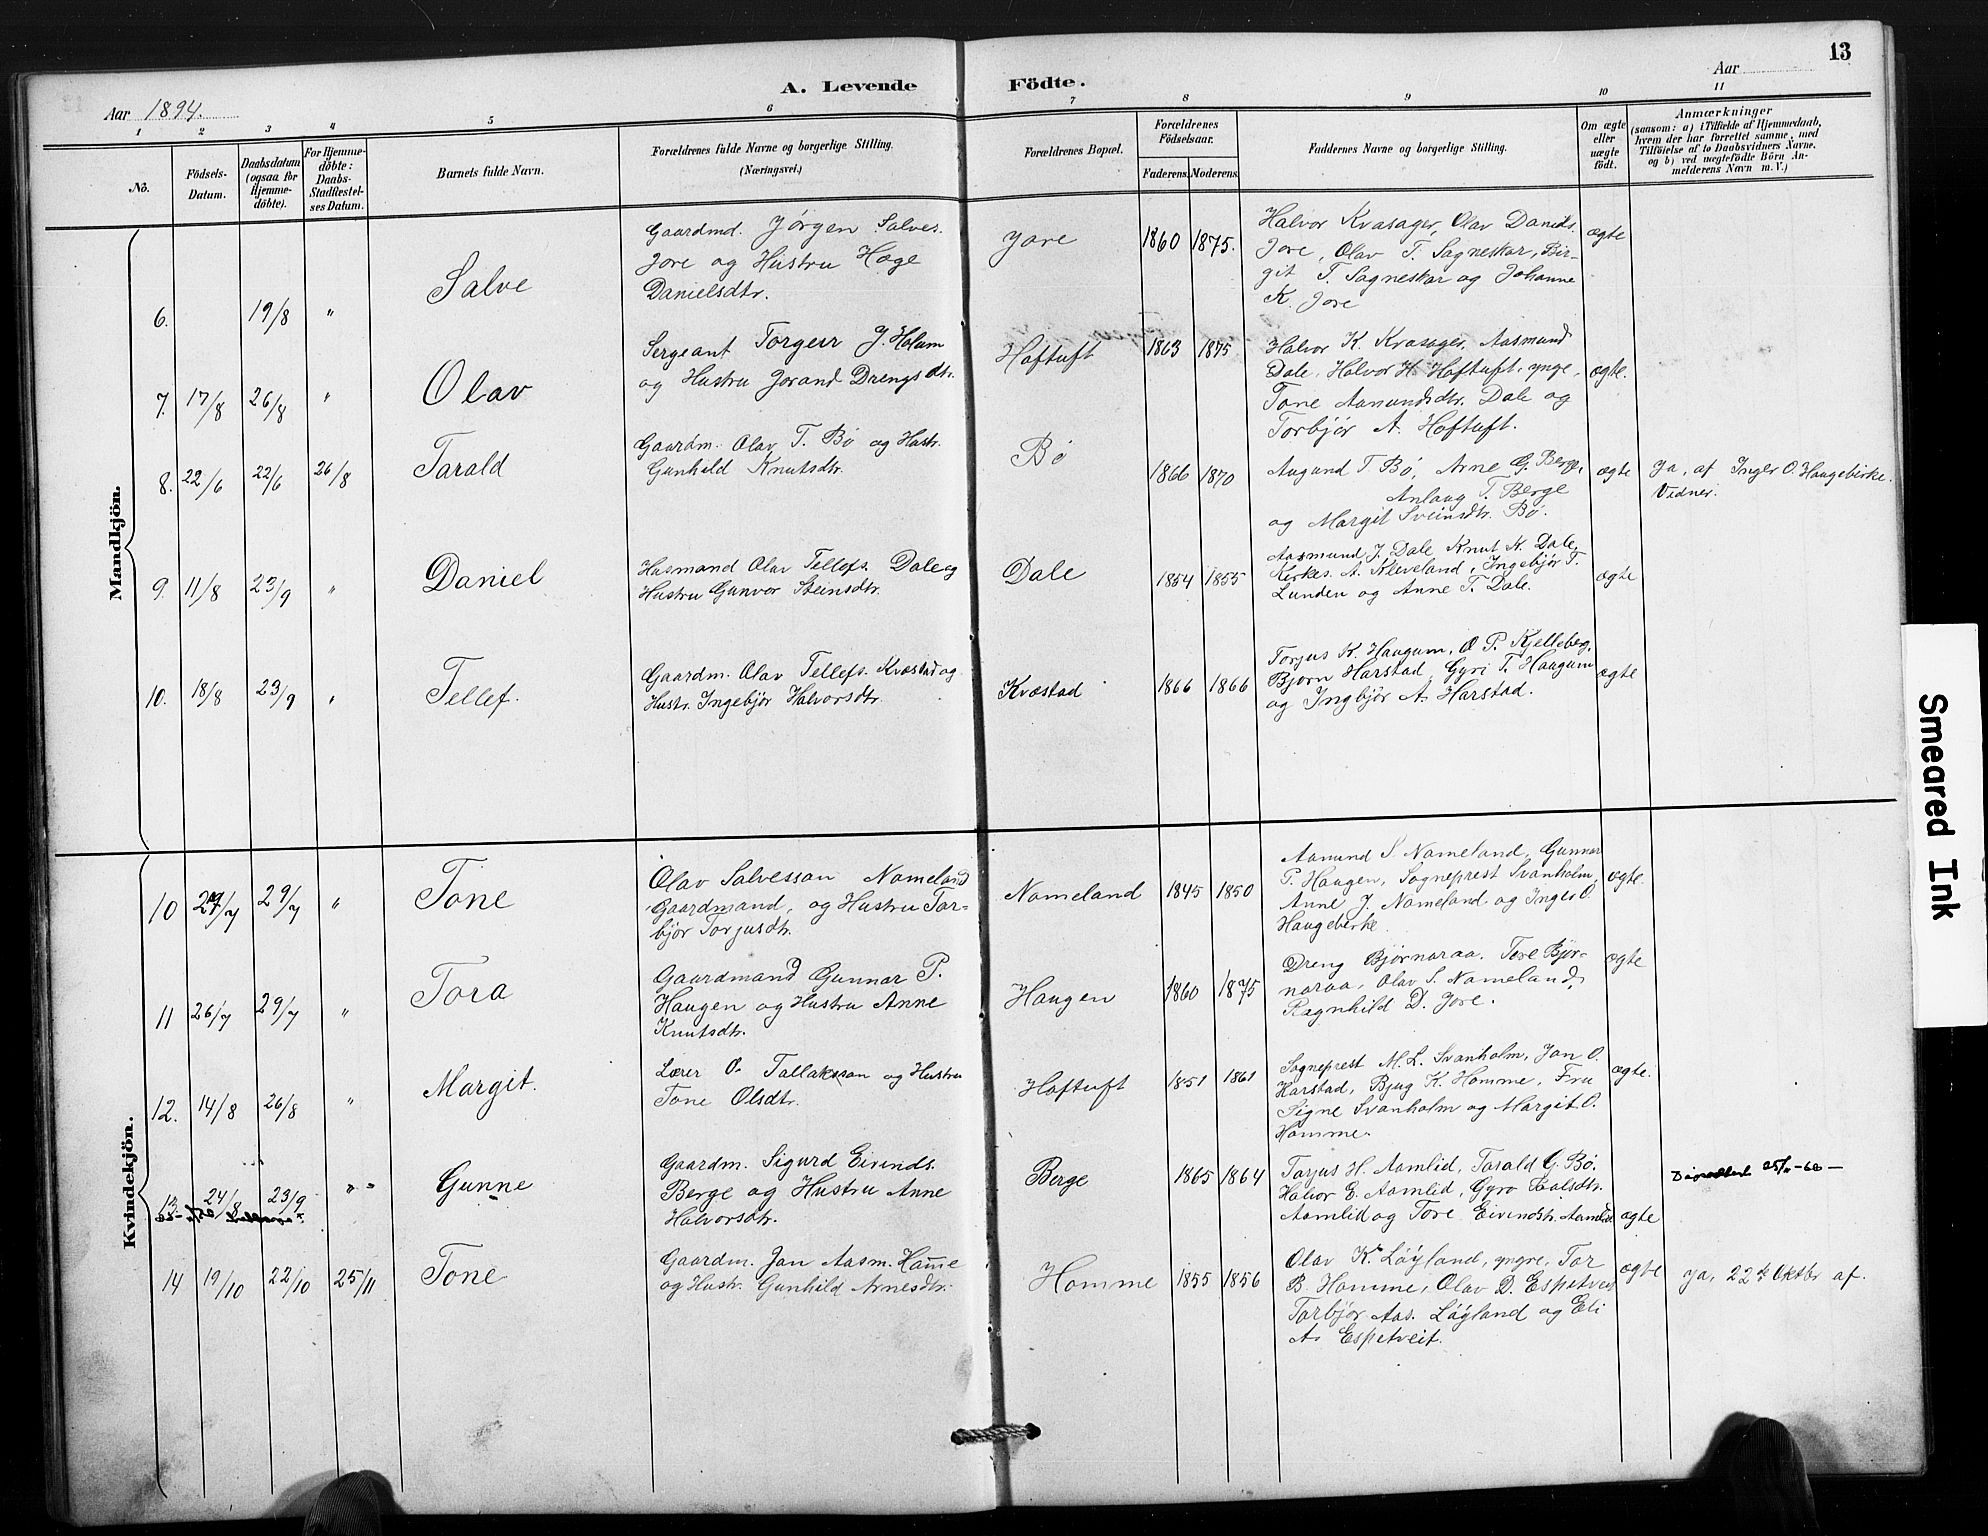 13
A. Levende Födte.
Aar 1894.
Aar
1 2 3 4 5 6 7 8 9 10 11
No.
Födsels-
Datum.
Daabsdatum
(ogsaa for
Hjemme-
döbte).
For Hjemme-
döbte:
Daabs-
Stadfæstel-
ses Datum.
Barnets fulde Navn.
Forældrenes fulde Navne og borgerlige Stilling.
(Næringsvei.)
Forældrenes Bopæl.
Forældrenes
Födselsaar.
Faderens. Moderens.
Faddernes Navne og borgerlige Stilling.
Om ægte
eller
uægte
födt.
Anmærkninger
(saasom: a) i Tilfælde af Hjemmedaab,
hvem der har forrettet samme, med
Tilföielse af to Daabsvidners Navne,
og b) ved uægtefödte Börn An-
melderens Navn m. V.)
Mandkjön.
6. 19/8 "
Salve
Gaardmd. Jörgen Salves.
Jore og Hustru Hæge
Danielsdtr.
Jore
1860 1875.
Halvor Kvasager, Olav Daniels.
Jore, Olav T. Sagneskar, Bir-
git T. Sagneskar og Johanne
K. Jore
ægte
7. 17/8 26/8 "
Olav
Sergeant Torgeir J. Holum
og Hustru Jorand Drengsdtr.
Hoftuft
1863 1875
Halvor K. Kvasager, Aasmund
Dale, Halvor H. Hoftuft, ynge,
Tone Aamundsdtr. Dale og
Torbjør A. Hoftuft.
ægte.
8. 22/6 22/6 26/8
Tarald
Gaardm. Olav T. Bø og Hustr.
Gunhild Knutsdtr.
Bø
1866 1870
Augund T Bø, Arne G. Berge,
Anlaug T. Berge
og Margit Sveinsdtr. Bø.
ægte
Ja, af Inger O. Haugebirke.
Vidner.
9. 11/8 23/9 "
Daniel
Husmand Olav Tellefs. Dale og
Hustru Gunvor Steinsdtr.
Dale
1854 1855
Aasmund J. Dale Knut K. Dale,
Kirkes. A. Kleveland, Ingebjør T.
Lunden og Anne T. Dale.
ægte
10. 18/8 23/9 "
Tellef.
Gaardm. Olav Tellefs. Kvæstad og
Hustr. Ingebjør Halvorsdtr.
Kvæstad
1866 1866
Torjus K. Haugum, O P. Kjelleberg,
Bjørn Harstad, Gyri T. Haugum
og Ingbjør A. Harstad.
ægte
Kvindekjön.
10 29/7 "
Tone
Olav Salvesson Nomeland
Gaardmand, og Hustru Tor-
bjør Torjusdtr.
Nomeland
1845 1850
Aamund S. Nomeland, Gunnar
P. Haugen, Sogneprest Svanholm,
Anne J. Nomeland og Inger O.
Haugebirke.
ægte.
11 26/7 29/7 "
Tora
Gaardmand Gunnar P.
Haugen og Hustru Anne
Knutsdtr.
Haugen
1860 1875
Dreng Bjørnaraa, Tore Bjør-
naraa, Olav S. Nomeland,
Ragnhild D. Jore.
ægte
12. 14/8 26/8 "
Margit.
Lærer O. Tallaksson og Hustru
Tone Olsdtr.
Hoftuft
1851 1861
Sogneprest M. L. Svanholm, Jon O.
Harstad, Bjug K. Homme, Fru
Signe Svanholm og Margit O.
Homme.
ægte.
13. 24/8 23/9 " "
Gunne
Gaardm. Sigurd Eivinds.
Berge og Hustru Anne
Halvorsdtr.
Berge
1865 1864
Torjus H. Aamlid, Tarald G. Bø,
Halvor E. Aamlid, Gyro Toolsdtr.
Aamlid og Tore Eivindstr. Aamlid.
ægte
14 19/10 22/10 25/11
Tone
Gaardm. Jon Aasm. Home
og Hustr. Gunhild Arnesdtr.
Homme
1855 1856
Olav K. Løyland, yngre, Tor
B. Homme, Olav D. Espetveit
Torbjør Aas. Løyland og Eli
A. Espetveit.
ægte
Ja, 22de Oktbr af.
Smeared Ink